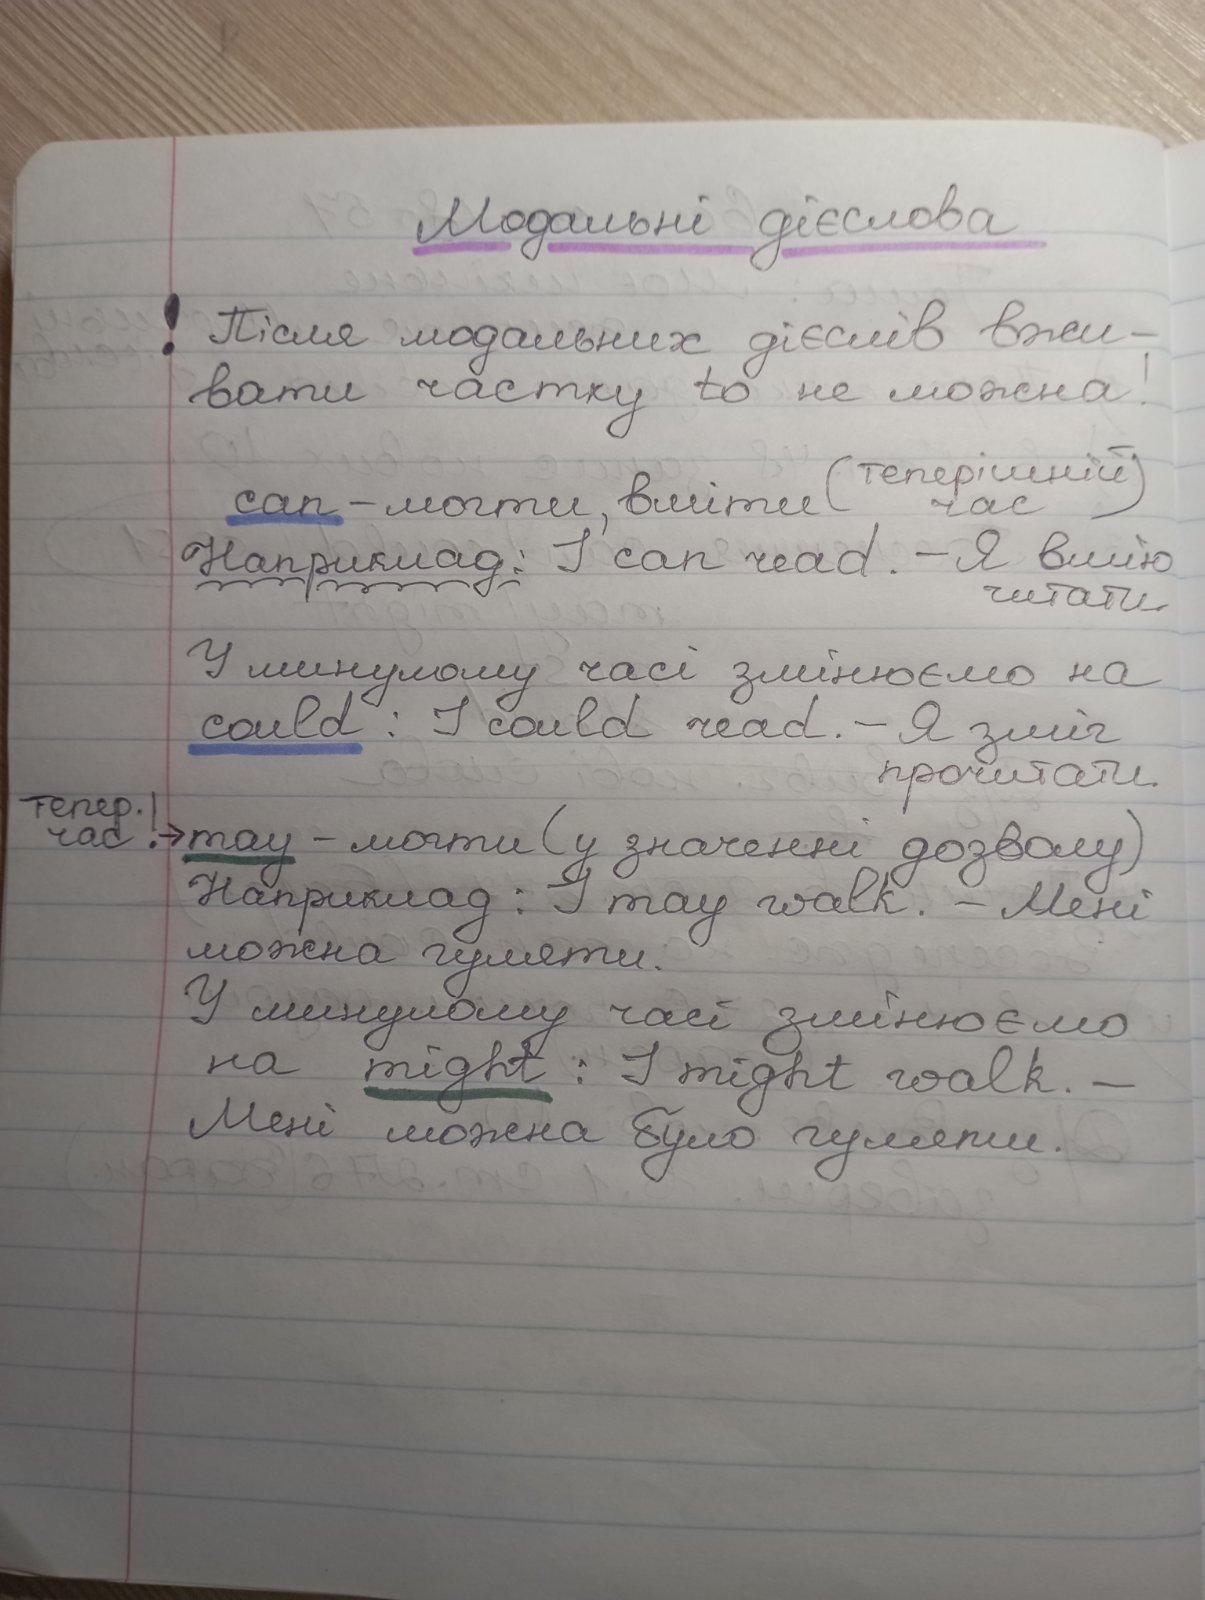 Модальні дієслова
! Після модальних дієслів вжи-
вати частку to не можна!
can – могти, вміти (теперішній
час)
Наприклад: I can read. – Я вмію
читати.
У минулому часі змінюємо на
could : I could read. – Я зміг
прочитати.
тепер.
час ! → may – могти (у значенні дозволу)
Наприклад : I may walk. – Мені
можна гуляти.
У минулому часі змінюємо
на might : I might walk. –
Мені можна було гуляти.